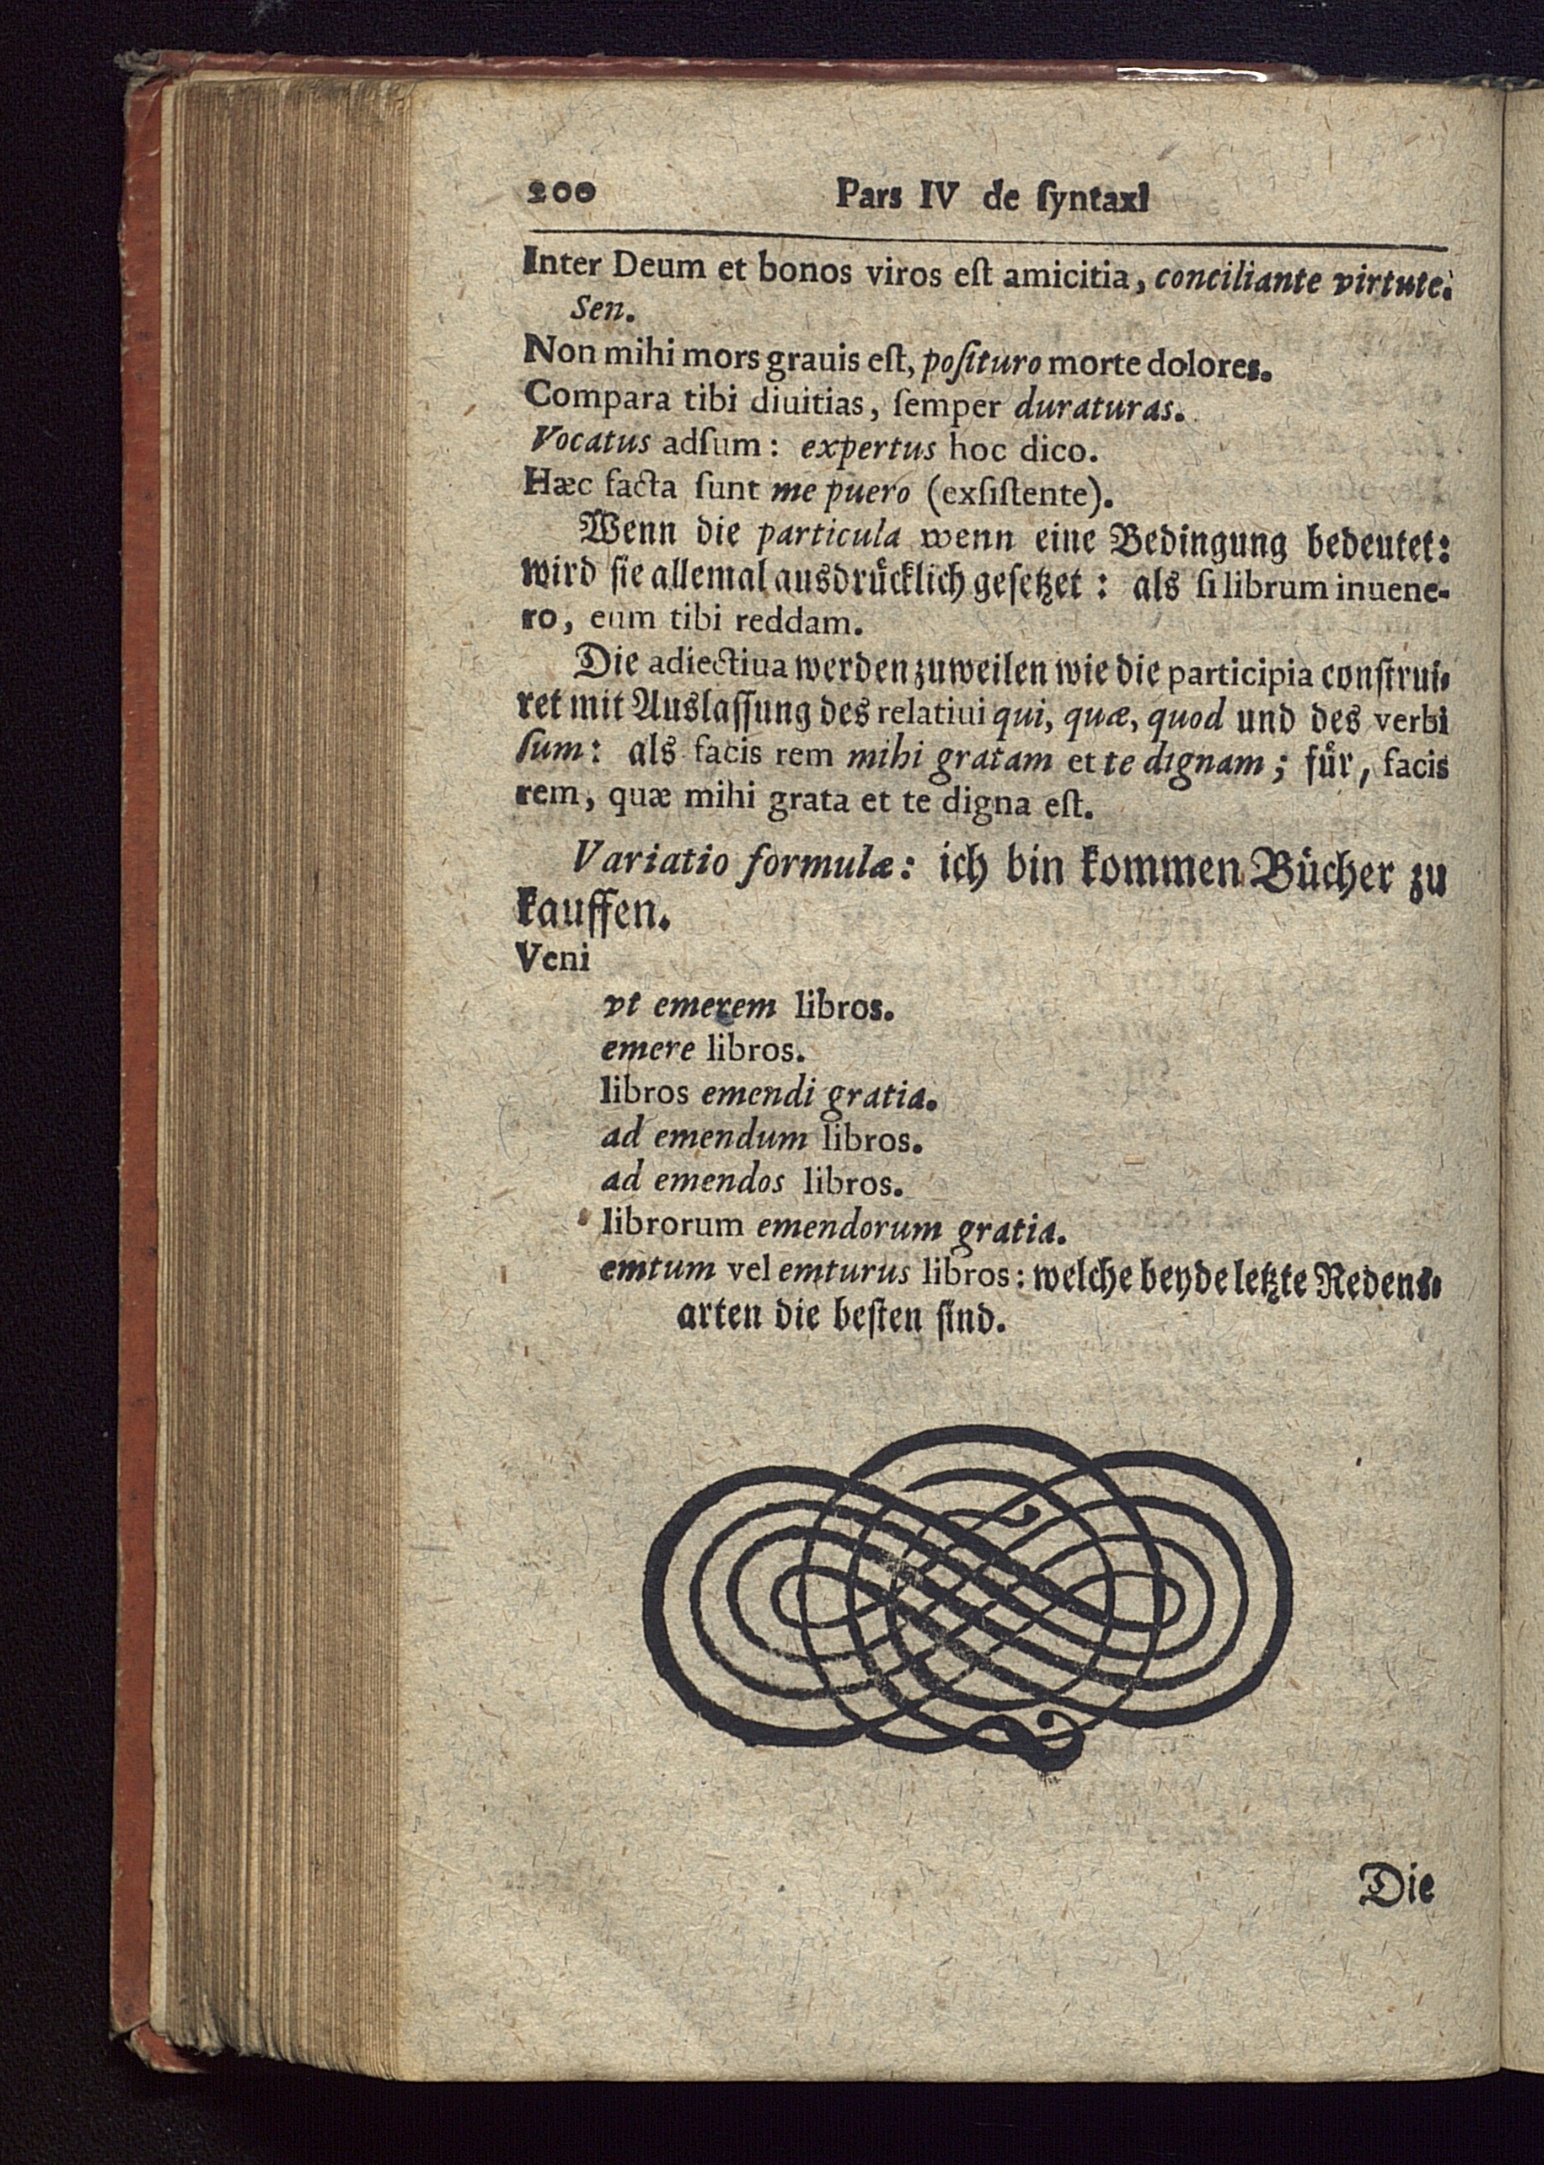 200 Pars IV de ſyntaxi
Inter Deum et bonos viros eſt amicitia, conciliante virtute.
Sen.
Non mihi mors grauis eſt, poſituro morte dolores.
Compara tibi diuitias, ſemper duraturas.
Vocatus adſum: expertus hoc dico.
Hæc facta ſunt me puero (exſiſtente).
Wenn die particula wenn eine Bedingung bedeutet:
wird ſie allemal ausdrücklich geſetzet: als ſi librum inuene-
ro, eum tibi reddam.
Die adiectiua werden zuweilen wie die participia conſtrui-
ret mit Auslaſſung des relatiui qui, quæ, quod und des verbi
ſum: als facis rem mihi gratam et te dignam; für, facis
rem, quæ mihi grata et te digna eſt.
Variatio formulæ: ich bin kommen Bücher zu
kauffen.
Veni
vt emerem libros.
emere libros.
libros emendi gratia.
ad emendum libros.
ad emendos libros.
librorum emendorum gratia.
emtum vel emturus libros: welche beyde letzte Redens-
arten die beſten ſind.
Die